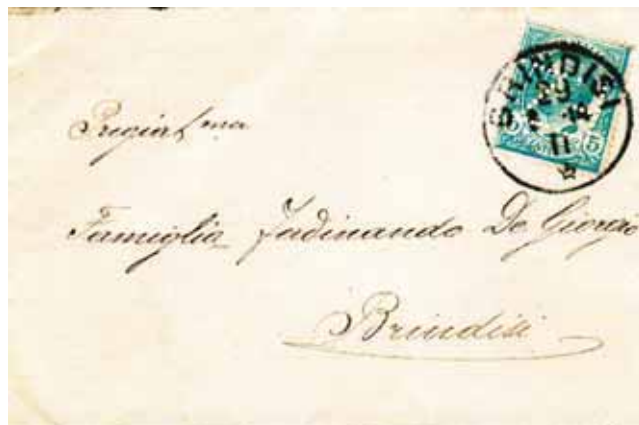 BRINDISI
29
11
5
Pregiat.ma
Famiglia Ferdinando De Giorgio
Brindisi